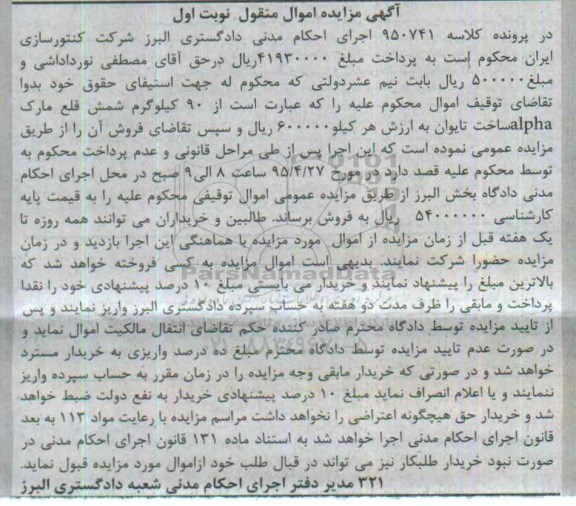 آگهی مزایده اموال منقول نوبت اول
در پرونده کلاسه ۹۵۰۷۴۱ اجرای احکام مدنی دادگستری البرز شرکت کنتورسازی
ایران محکوم است به پرداخت مبلغ ۴۱۹۳۰۰۰۰ریال درحق آقای مصطفی نورداداشی و
مبلغ۵۰۰۰۰۰ ریال بابت نیم عشردولتی که محکوم له جهت استیفای حقوق خود بدوا
تقاضای توقیف اموال محکوم علیه را که عبارت است از ۹۰ کیلوگرم شمش قلع مارک
alphaساخت تایوان به ارزش هر کیلو۶۰۰۰۰۰ ریال و سپس تقاضای فروش آن را از طریق
مزایده عمومی نموده است که این اجرا پس از طی مراحل قانونی و عدم پرداخت محکوم به
توسط محکوم علیه قصد دارد در مورخ ۹۵/۴/۲۷ ساعت ۸ الی۹ صبح در محل اجرای احکام
مدنی دادگاه بخش البرز از طریق مزایده عمومی اموال توقیفی محکوم علیه را به قیمت پایه
کارشناسی ۵۴۰۰۰۰۰۰ ریال به فروش برساند. طالبین و خریداران می توانند همه روزه تا
یک هفته قبل از زمان مزایده از اموال مورد مزایده با هماهنگی این اجرا بازدید و در زمان
مزایده حضورا شرکت نمایند. بدیهی است اموال مزایده به کسی فروخته خواهد شد که
بالاترین مبلغ را پیشنهاد نمایند و خریدار می بایستی مبلغ ۱۰ درصد پیشنهادی خود را نقدا
پرداخت و مابقی را ظرف مدت دو هفته به حساب سپرده دادگستری البرز واریز نمایند و پس
از تایید مزایده توسط دادگاه محترم صادر کننده حکم تقاضای انتقال مالکیت اموال نماید و
در صورت عدم تایید مزایده توسط دادگاه محترم مبلغ ده درصد واریزی به خریدار مسترد
خواهد شد و در صورتی که خریدار مابقی وجه مزایده را در زمان مقرر به حساب سپرده واریز
ننمایند و یا اعلام انصراف نماید مبلغ ۱۰ درصد پیشنهادی خریدار به نفع دولت ضبط خواهد
شد و خریدار حق هیچگونه اعتراضی را نخواهد داشت مراسم مزایده با رعایت مواد ۱۱۳ به بعد
قانون اجرای احکام مدنی اجرا خواهد شد به استناد ماده ۱۳۱ قانون اجرای احکام مدنی در
صورت نبود خریدار طلبکار نیز می تواند در قبال طلب خود ازاموال مورد مزایده قبول نماید.
۳۲۱ مدیر دفتر اجرای احکام مدنی شعبه دادگستری البرز
ParsNamadData